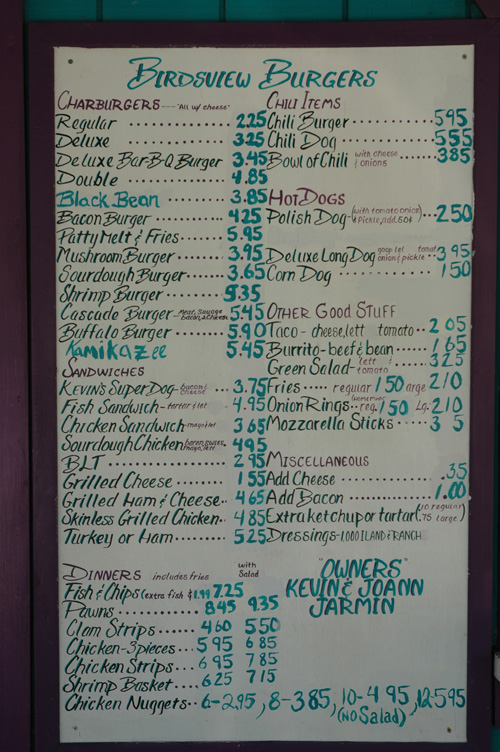 BIRDSVIEW BURGERS
CHARBURGERS --- "All w/ cheese"
Regular 2.25
Deluxe 3.25
Deluxe Bar-B-Q Burger 3.45
Double 4.85
Black Bean 3.85
Bacon Burger 4.25
Patty Melt & Fries 5.95
Mushroom Burger 3.95
Sourdough Burger 3.65
Shrimp Burger 5.35
Cascade Burger - bacon, & cheese 5.45
Buffalo Burger 5.90
KamiKAZee 5.45
SANDWICHES
KEVIN'S SUPER DOG - bacon & cheese 3.75
Fish Sandwich - tartar & let 4.95
Chicken Sandwich - mayo & let 3.65
Sourdough Chicken bacon, swiss, mayo, lett 4.95
BLT 2.95
Grilled Cheese 1.55
Grilled Ham & Cheese 4.65
Skinless Grilled Chicken 4.85
Turkey or Ham 5.25
CHILI ITEMS
Chili Burger 5.95
Chili Dog 5.55
Bowl of Chili with cheese & onions 3.85
HOT DOGS
Polish Dog - (with tomato onion & Pickle, add .50¢) 2.50
Deluxe Long Dog onion & pickle 3.95
Corn Dog 1.50
OTHER GOOD STUFF
Taco - cheese, lett tomato 2.05
Burrito - beef & bean 1.65
Green Salad - lett & tomato 3.25
Fries regular 1.50 large 2.10
Onion Rings reg. 1.50 Lg. 2.10
Mozzarella Sticks 3 5
MISCELLANEOUS
Add Cheese .35
Add Bacon 1.00
Extra ketchup or tartar (.10 regular) (.75 large)
DRESSINGS - 1,000 ISLAND & RANCH
DINNERS includes fries with Salad
Fish & Chips (extra fish $1.99 7.25
Pawns 8.45 9.35
Clam Strips 4.60 5.50
Chicken - 3 pieces 5.95 6.85
Chicken Strips 6.95 7.85
Shrimp Basket 6.25 7.15
Chicken Nuggets 6-2.95, 8-3.85, 10-4.95, 12-5.95
(NO Salad)
"OWNERS"
KEVIN & JOANN
JARMIN